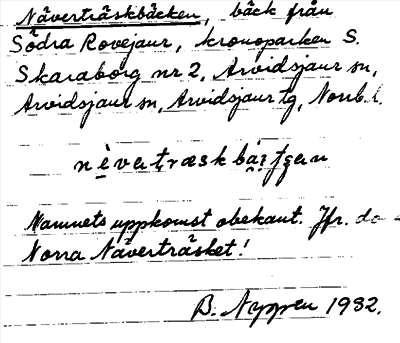 Näverträskbäcken, bäck från
Södra Rovejaur, kronoparken S.
Skaraborg nr 2, Arvidsjaur sn,
Arvidsjaur sn, Arvidsjaur tg, Norrb. l.
Namnets uppkomst obekant. Jfr. do
Norra Näverträsket!
B. Nyppen 1932.